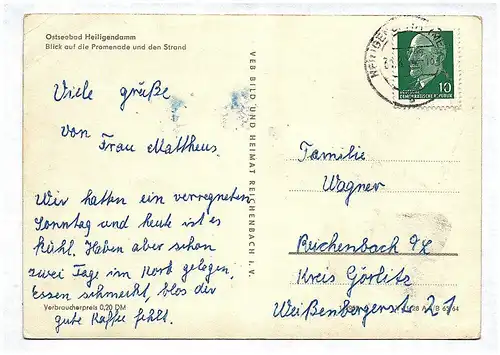 Ostseebad Heiligendamm
Blick auf die Promenade und den Strand
Viele grüße
von Frau Mattheus.
Wir hatten ein verregneten
Sonntag und heute ist es
kühl. Haben aber schon
zwei Tage im Korb gelegen.
Essen schmeckt, blos der
gute Kaffee fehlt.
Verbraucherpreis 0,20 DM
VEB BILD UND HEIMAT REICHENBACH i. V.
DEMOKRATISCHE REPUBLIK
10
Familie
Wagner
Reichenbach O/L
Kreis Görlitz
Weißenbergerstr 21